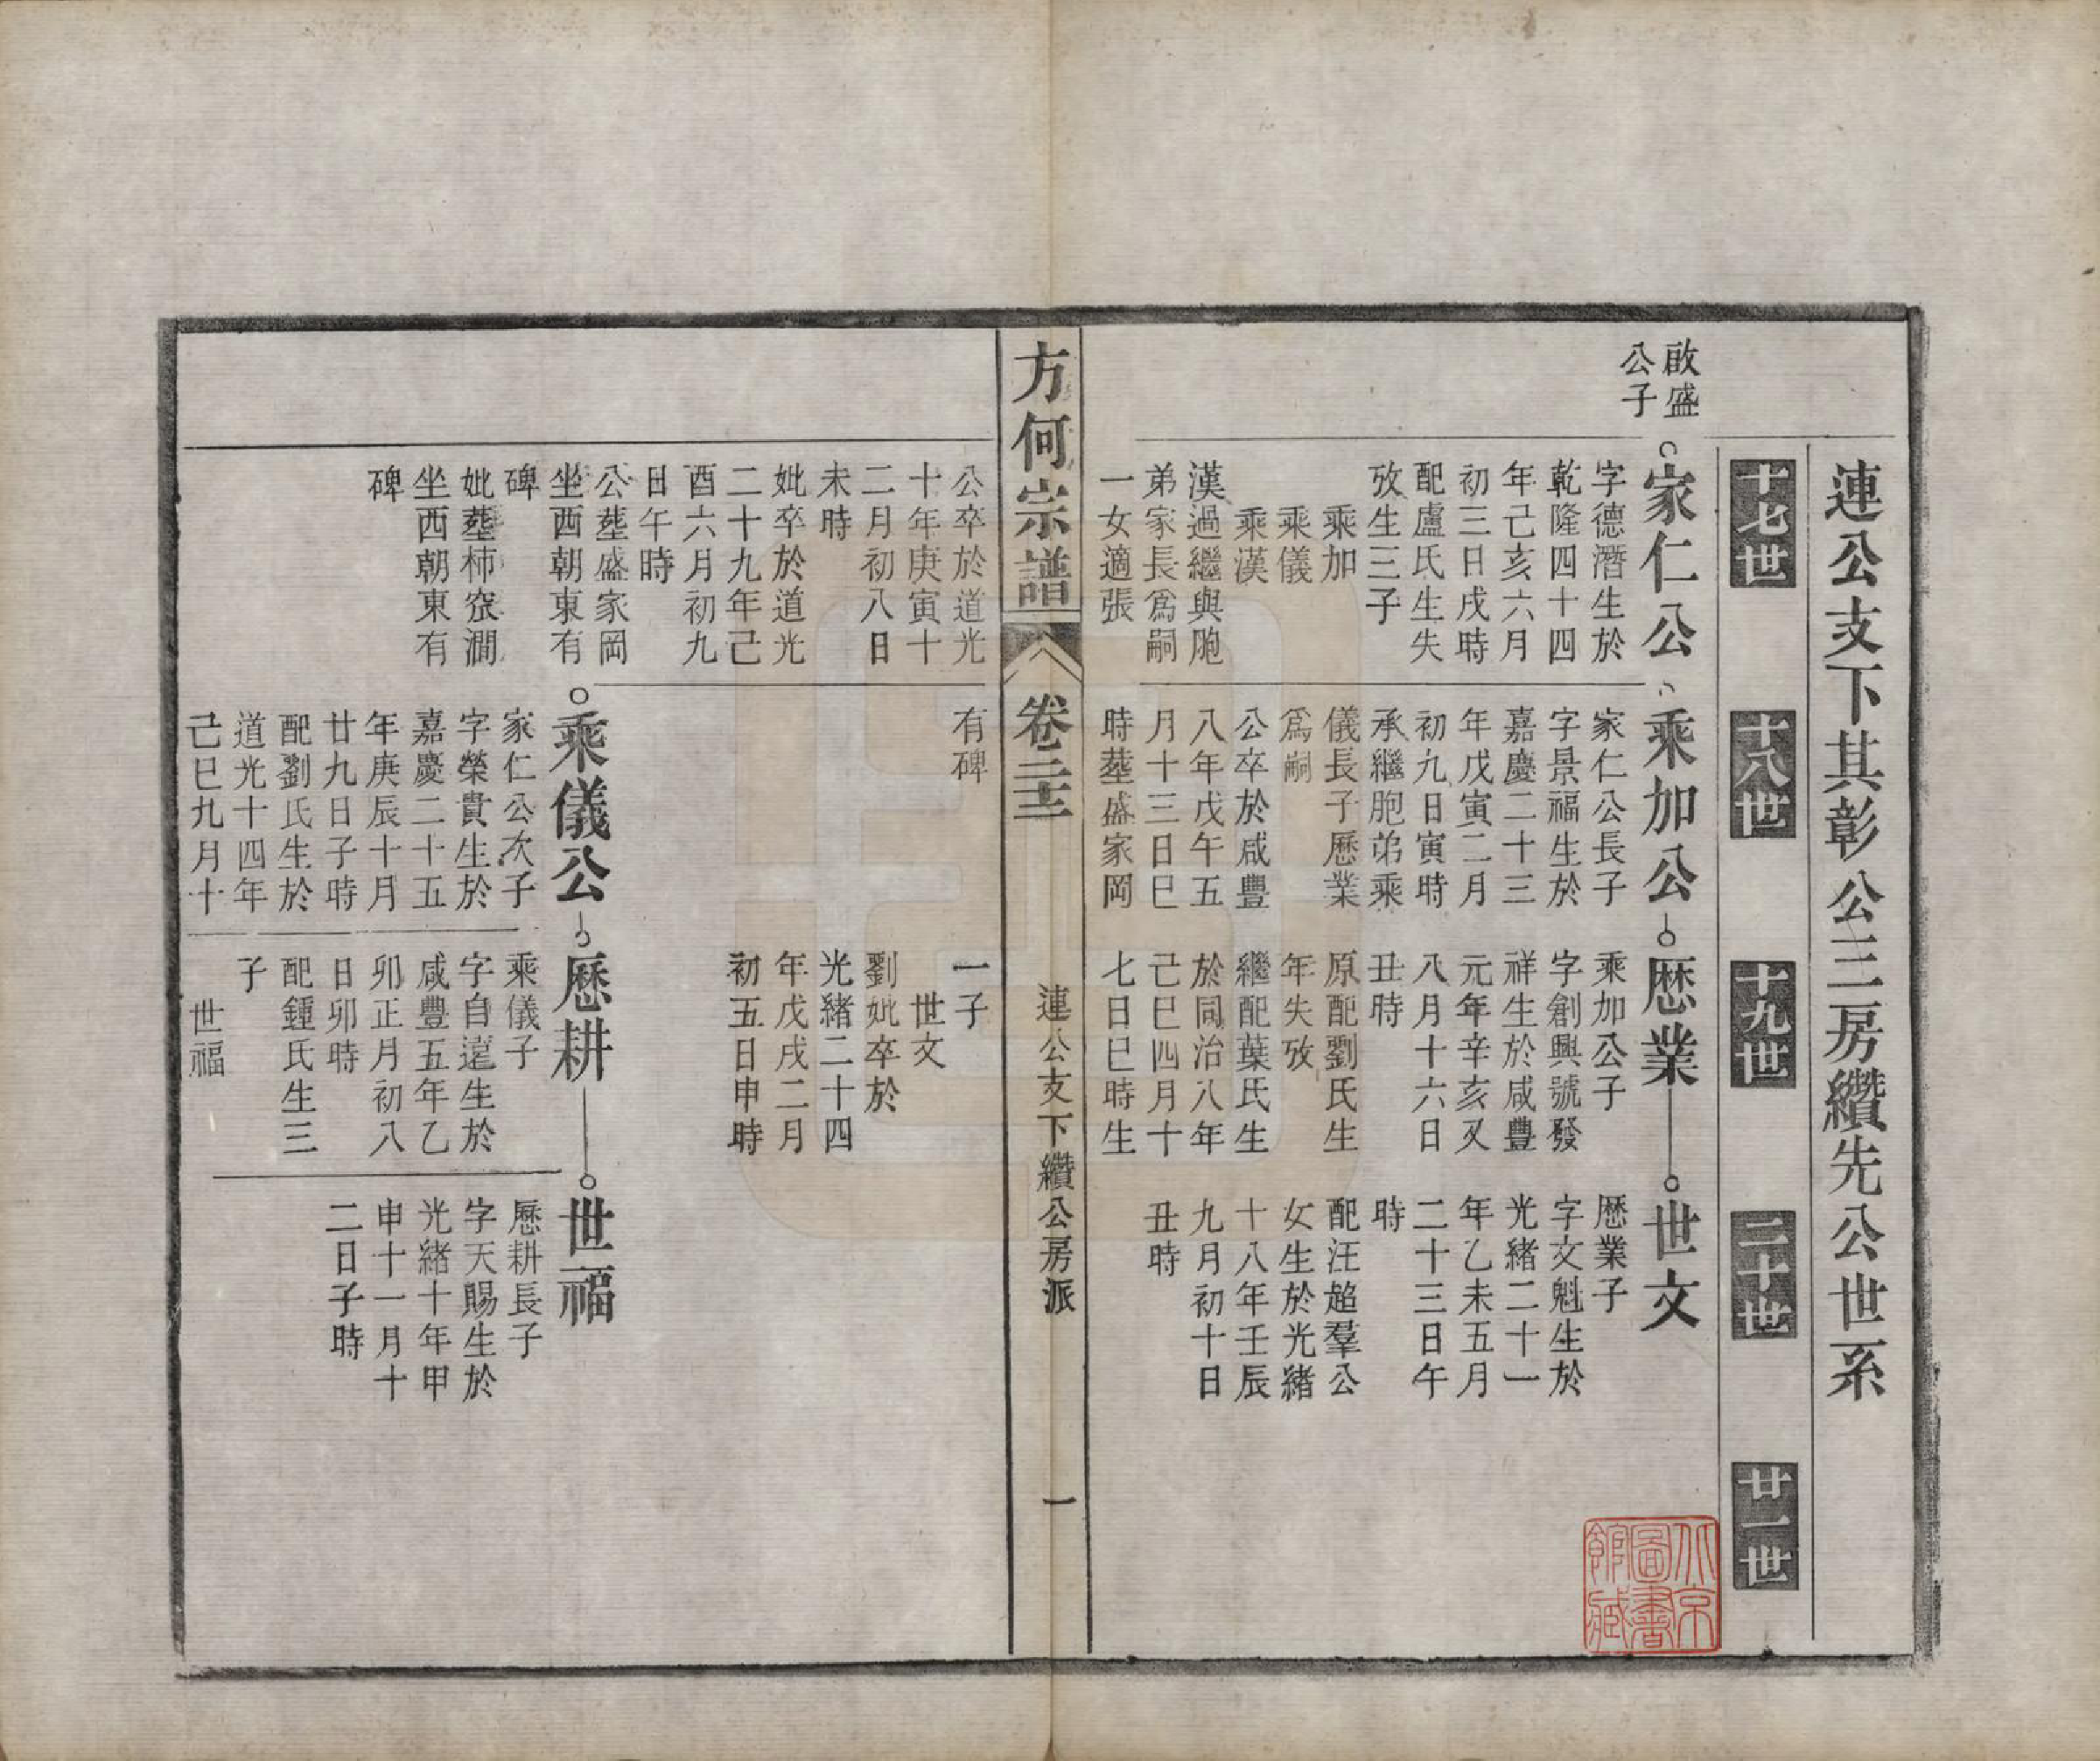 連公支下其彰公三房纘先公世系
十七世
十八世
十九世
二十世
廿一世
啟盛
公子
家仁公
字德潛生於
乾隆四十四
年己亥六月
初三日戌時
配盧氏生失
攷生三子
乘加
乘儀
乘漢
漢過繼與胞
弟家長爲嗣
一女適張
乘加公
家仁公長子
字景福生於
嘉慶二十三
年戊寅二月
初九日寅時
承繼胞弟乘
儀長子歷業
爲嗣
公卒於咸豐
八年戊午五
月十三日巳
時塟盛家岡
歷業
乘加公子
字創興號發
祥生於咸豐
元年辛亥又
八月十六日
丑時
原配劉氏生
年失攷
繼配葉氏生
於同治八年
己巳四月十
七日巳時生
世文
歷業子
字文魁生於
光緒二十一
年乙未五月
二十三日午
時
配汪超羣公
女生於光緒
十八年壬辰
九月初十日
丑時
北京
圖書
館藏
方何宗譜
卷二十三
連公支下纘公房派
一
公卒於道光
十年庚寅十
二月初八日
未時
妣卒於道光
二十九年己
酉六月初九
日午時
公塟盛家岡
坐西朝東有
碑
妣塟柿窊澗
坐西朝東有
碑
有碑
一子
世文
劉妣卒於
光緒二十四
年戊戌二月
初五日申時
乘儀公
家仁公次子
字榮貴生於
嘉慶二十五
年庚辰十月
廿九日子時
配劉氏生於
道光十四年
己巳九月十
歷耕
乘儀子
字自遠生於
咸豐五年乙
卯正月初八
日卯時
配鍾氏生三
子
世福
世福
歷耕長子
字天賜生於
光緒十年甲
申十一月十
二日子時